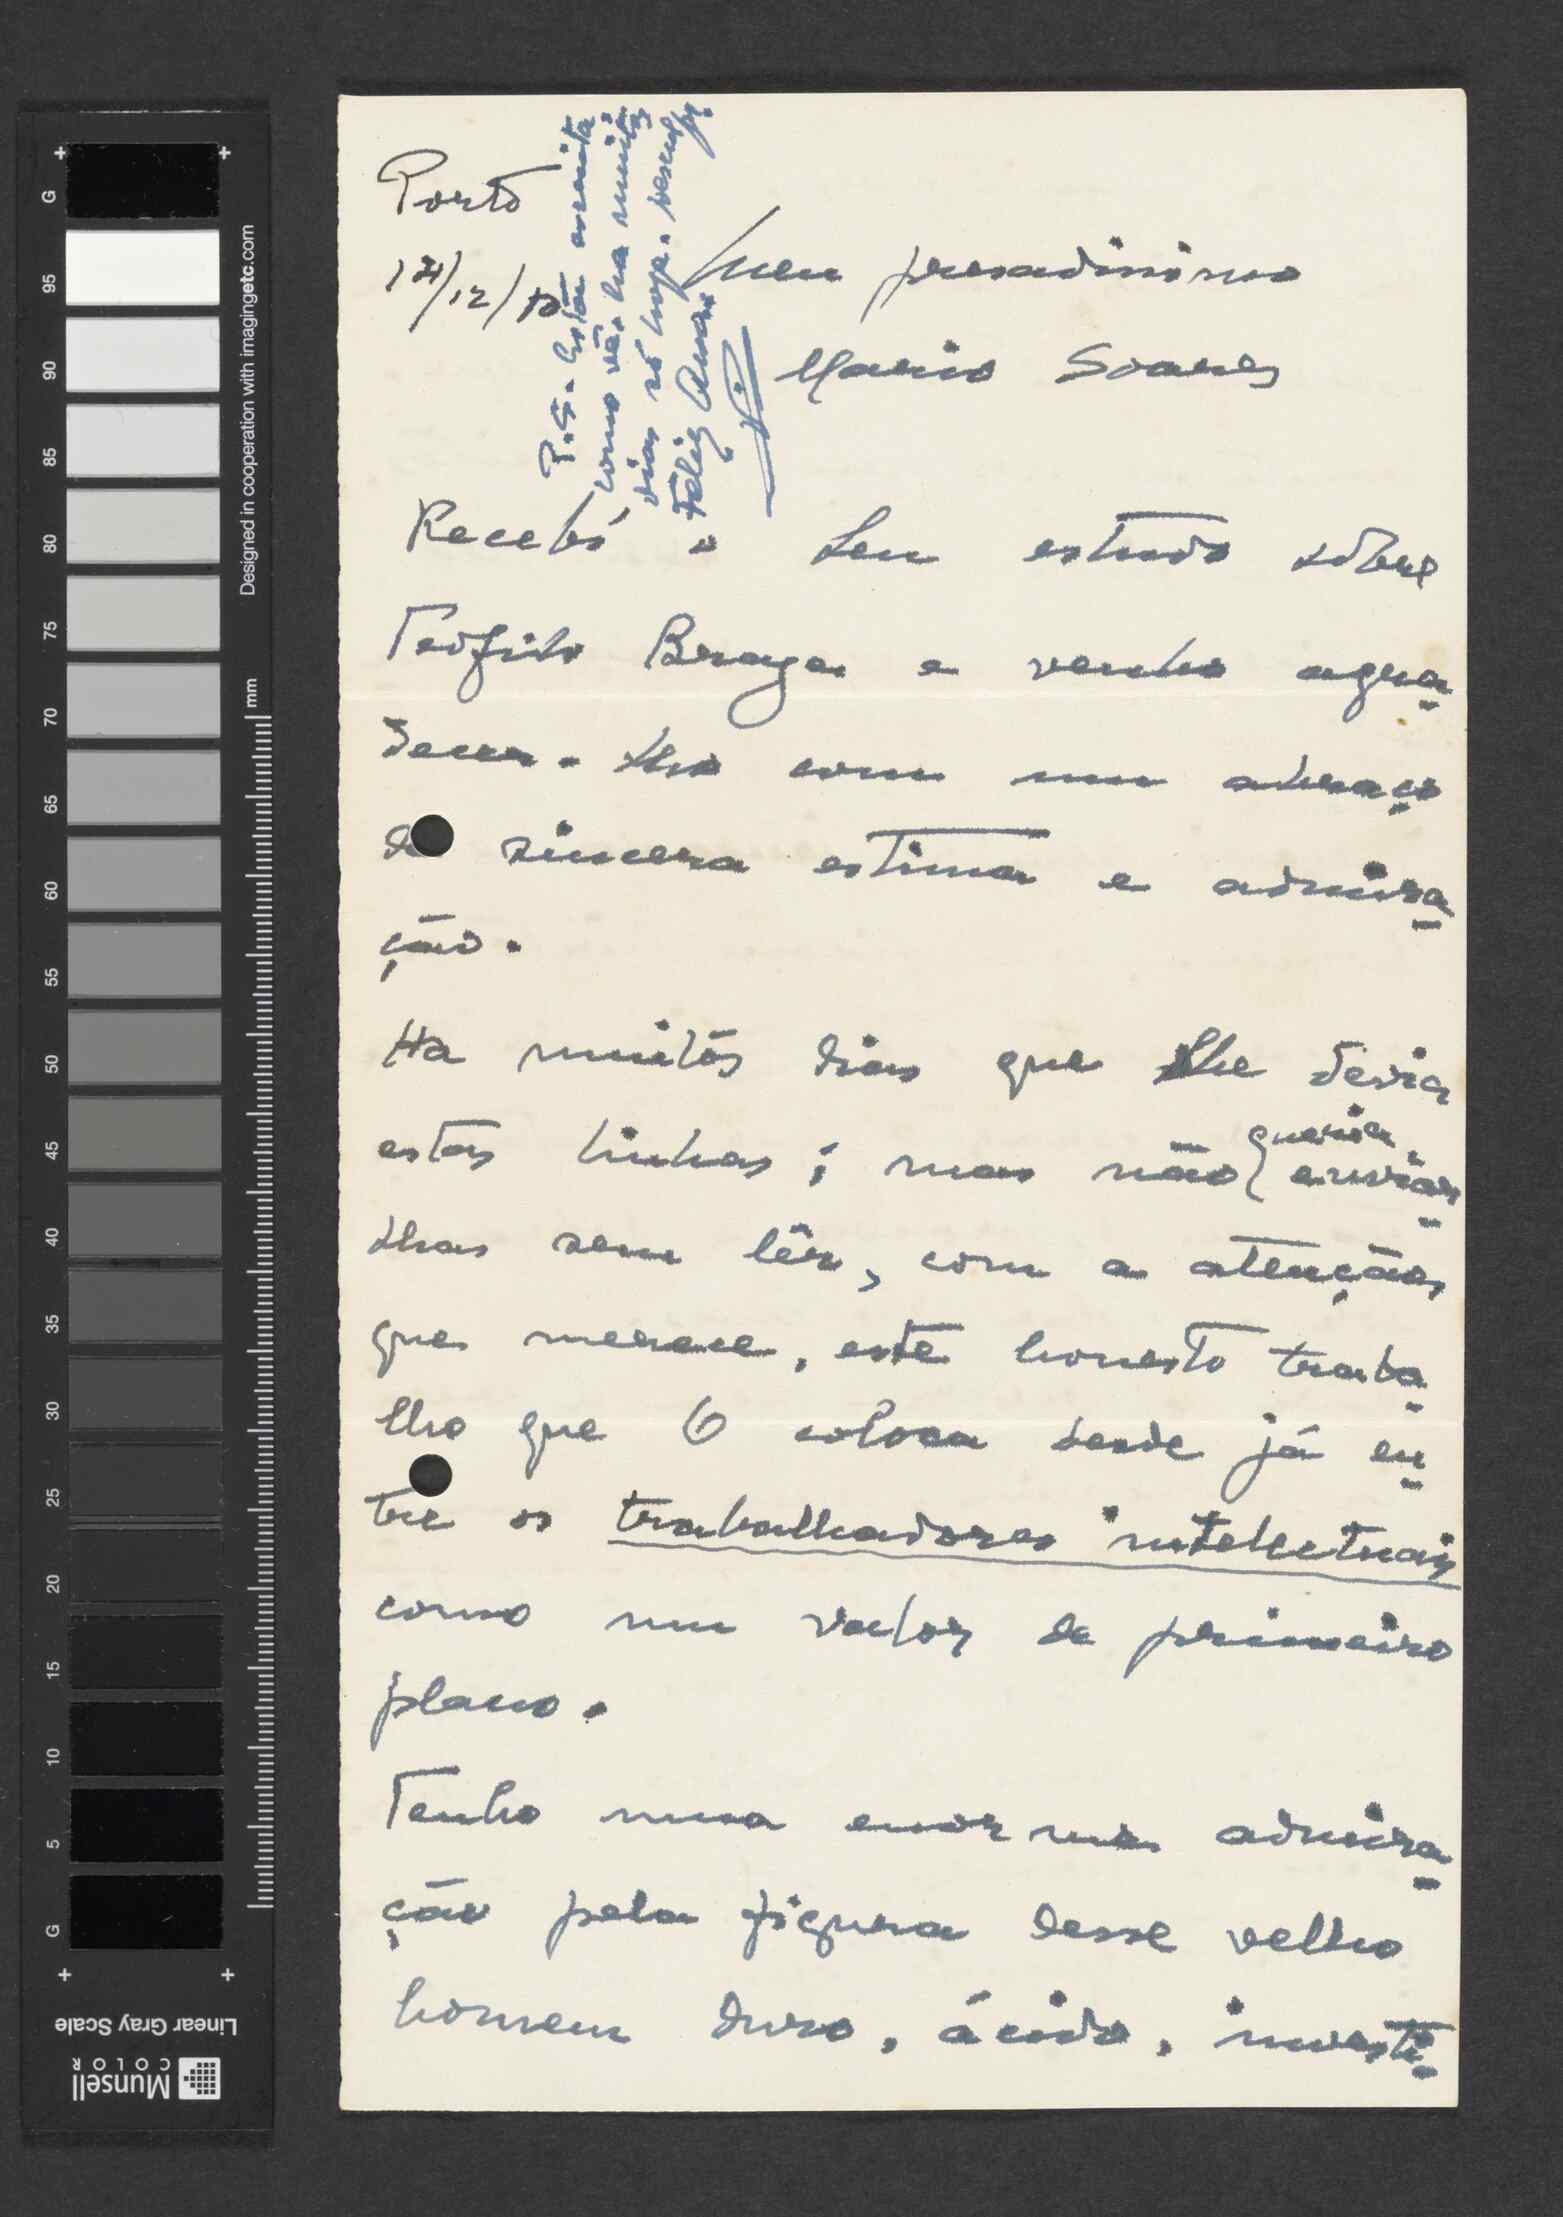 Porto
Meu presadissimo
Mario Soares
P.S. - Estou escrita
como vê, ha muitos
dias só hoje.
Recebi o seu estudo sôbre
Teofilo Braga e venho agra
decer-lho com um abraço
de sincera estima e admira
ção.
Ha muitos dias que lhe devia
estas linhas; mas não queria enviar
lhas sem lêr, com a atenção
que merece, este honesto traba
lho que O coloca desde já en
tre os trabalhadores intelectuais
como um valor de primeiro
plano.
Tenho uma enorme admira
ção pela figura desse velho
homem duro, ácido, investi
Designed in cooperation with imagingetc.com
mm
G 95 90 85 80 75 70 65 60 55 50 45 40 35 30 25 20 15 10 5 G
Linear Gray Scale
Munsell
COLOR